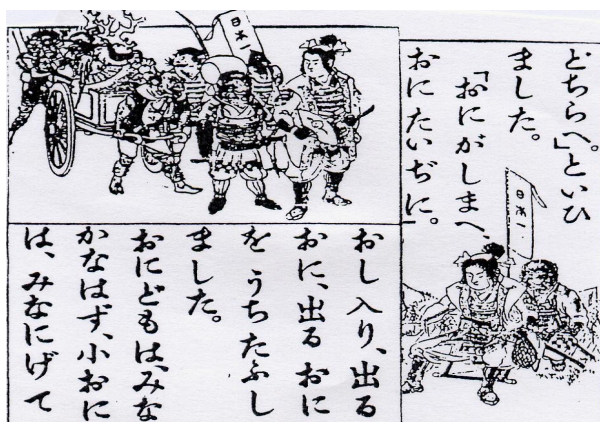 どちらへ。」といひ
ました。
「おにがしまへ、
おにたいぢに。」
日本一
日本一
おし入り、出る
おに、出る おに
を うちたふし
ました。
おにどもは、みな
かなはず、小おに
は、みなにげて